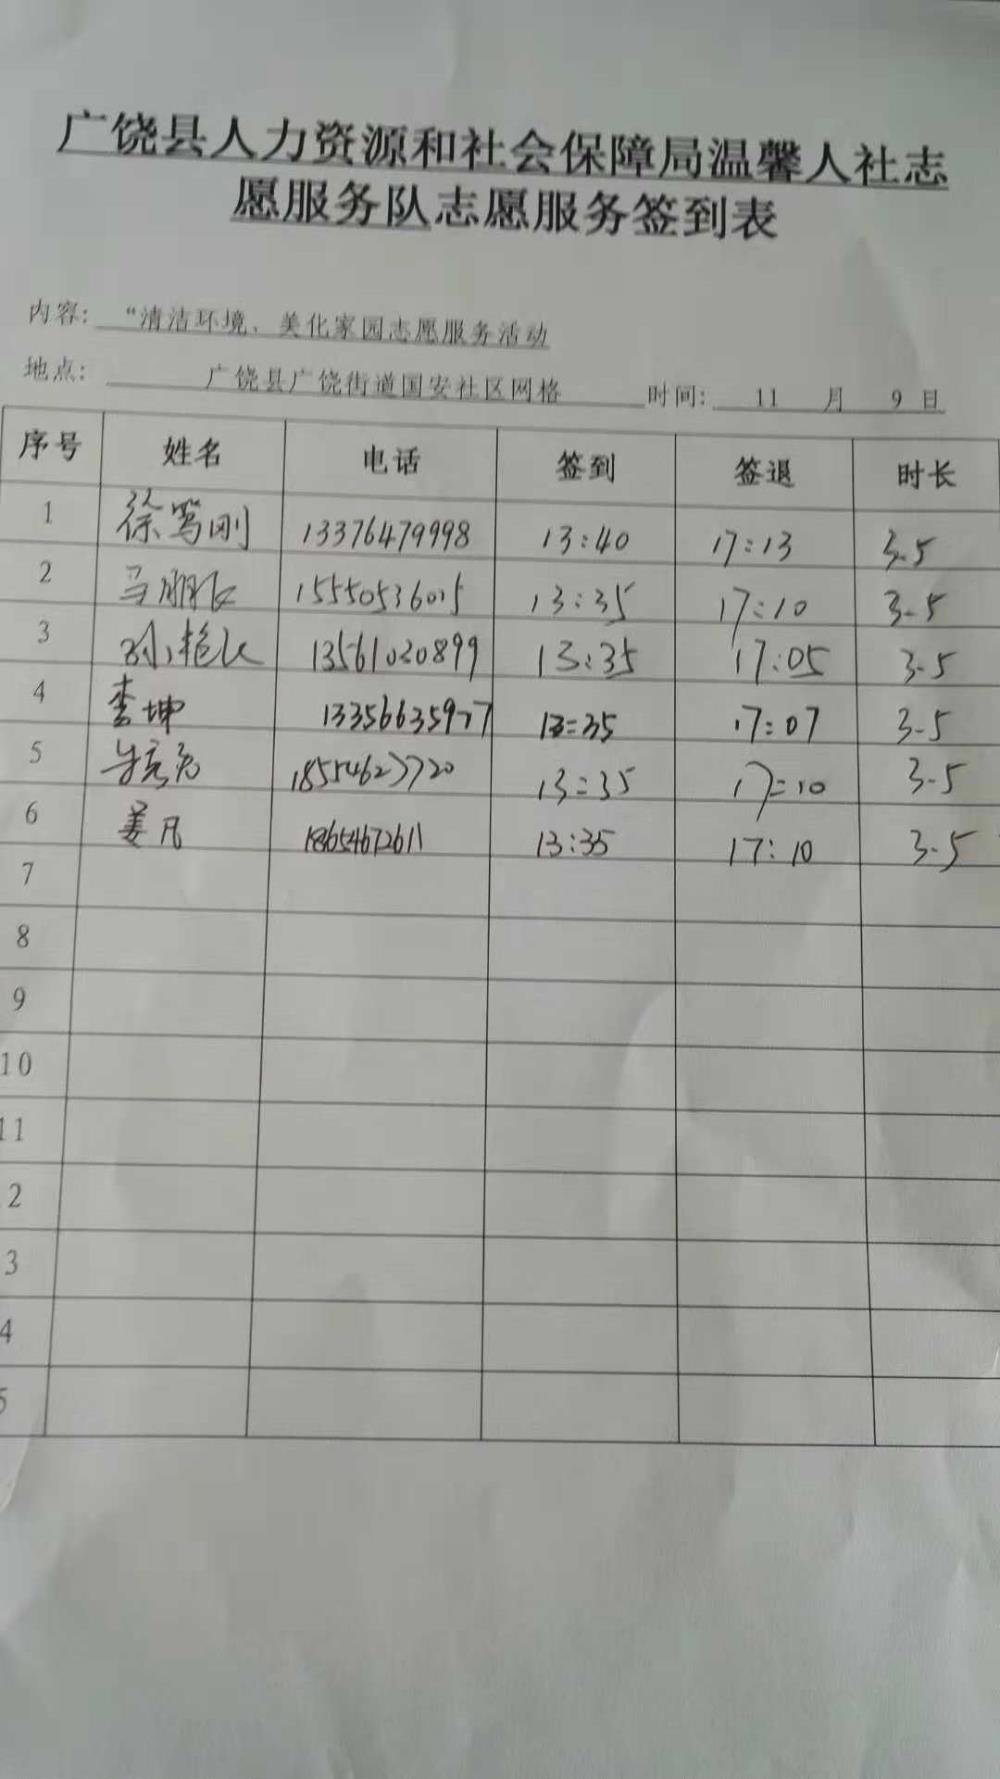 广饶县人力资源和社会保障局温馨人社志
愿服务队志愿服务签到表
内容: “清洁环境、美化家园志愿服务活动
地点: 广饶县广饶街道国安社区网格 时间: 11 月 9 日
序号 姓名 电话 签到 签退 时长
1 徐笃刚 13376479998 13:40 17:13 3.5
2 15550536015 13:35 17:10 3.5
3 13561020899 13:35 17:05 3.5
4 李坤 13356635977 13:35 17:07 3.5
5 18554623720 13:35 17:10 3.5
6 姜凡 18654672611 13:35 17:10 3.5
7
8
9
10
11
2
3
4
5